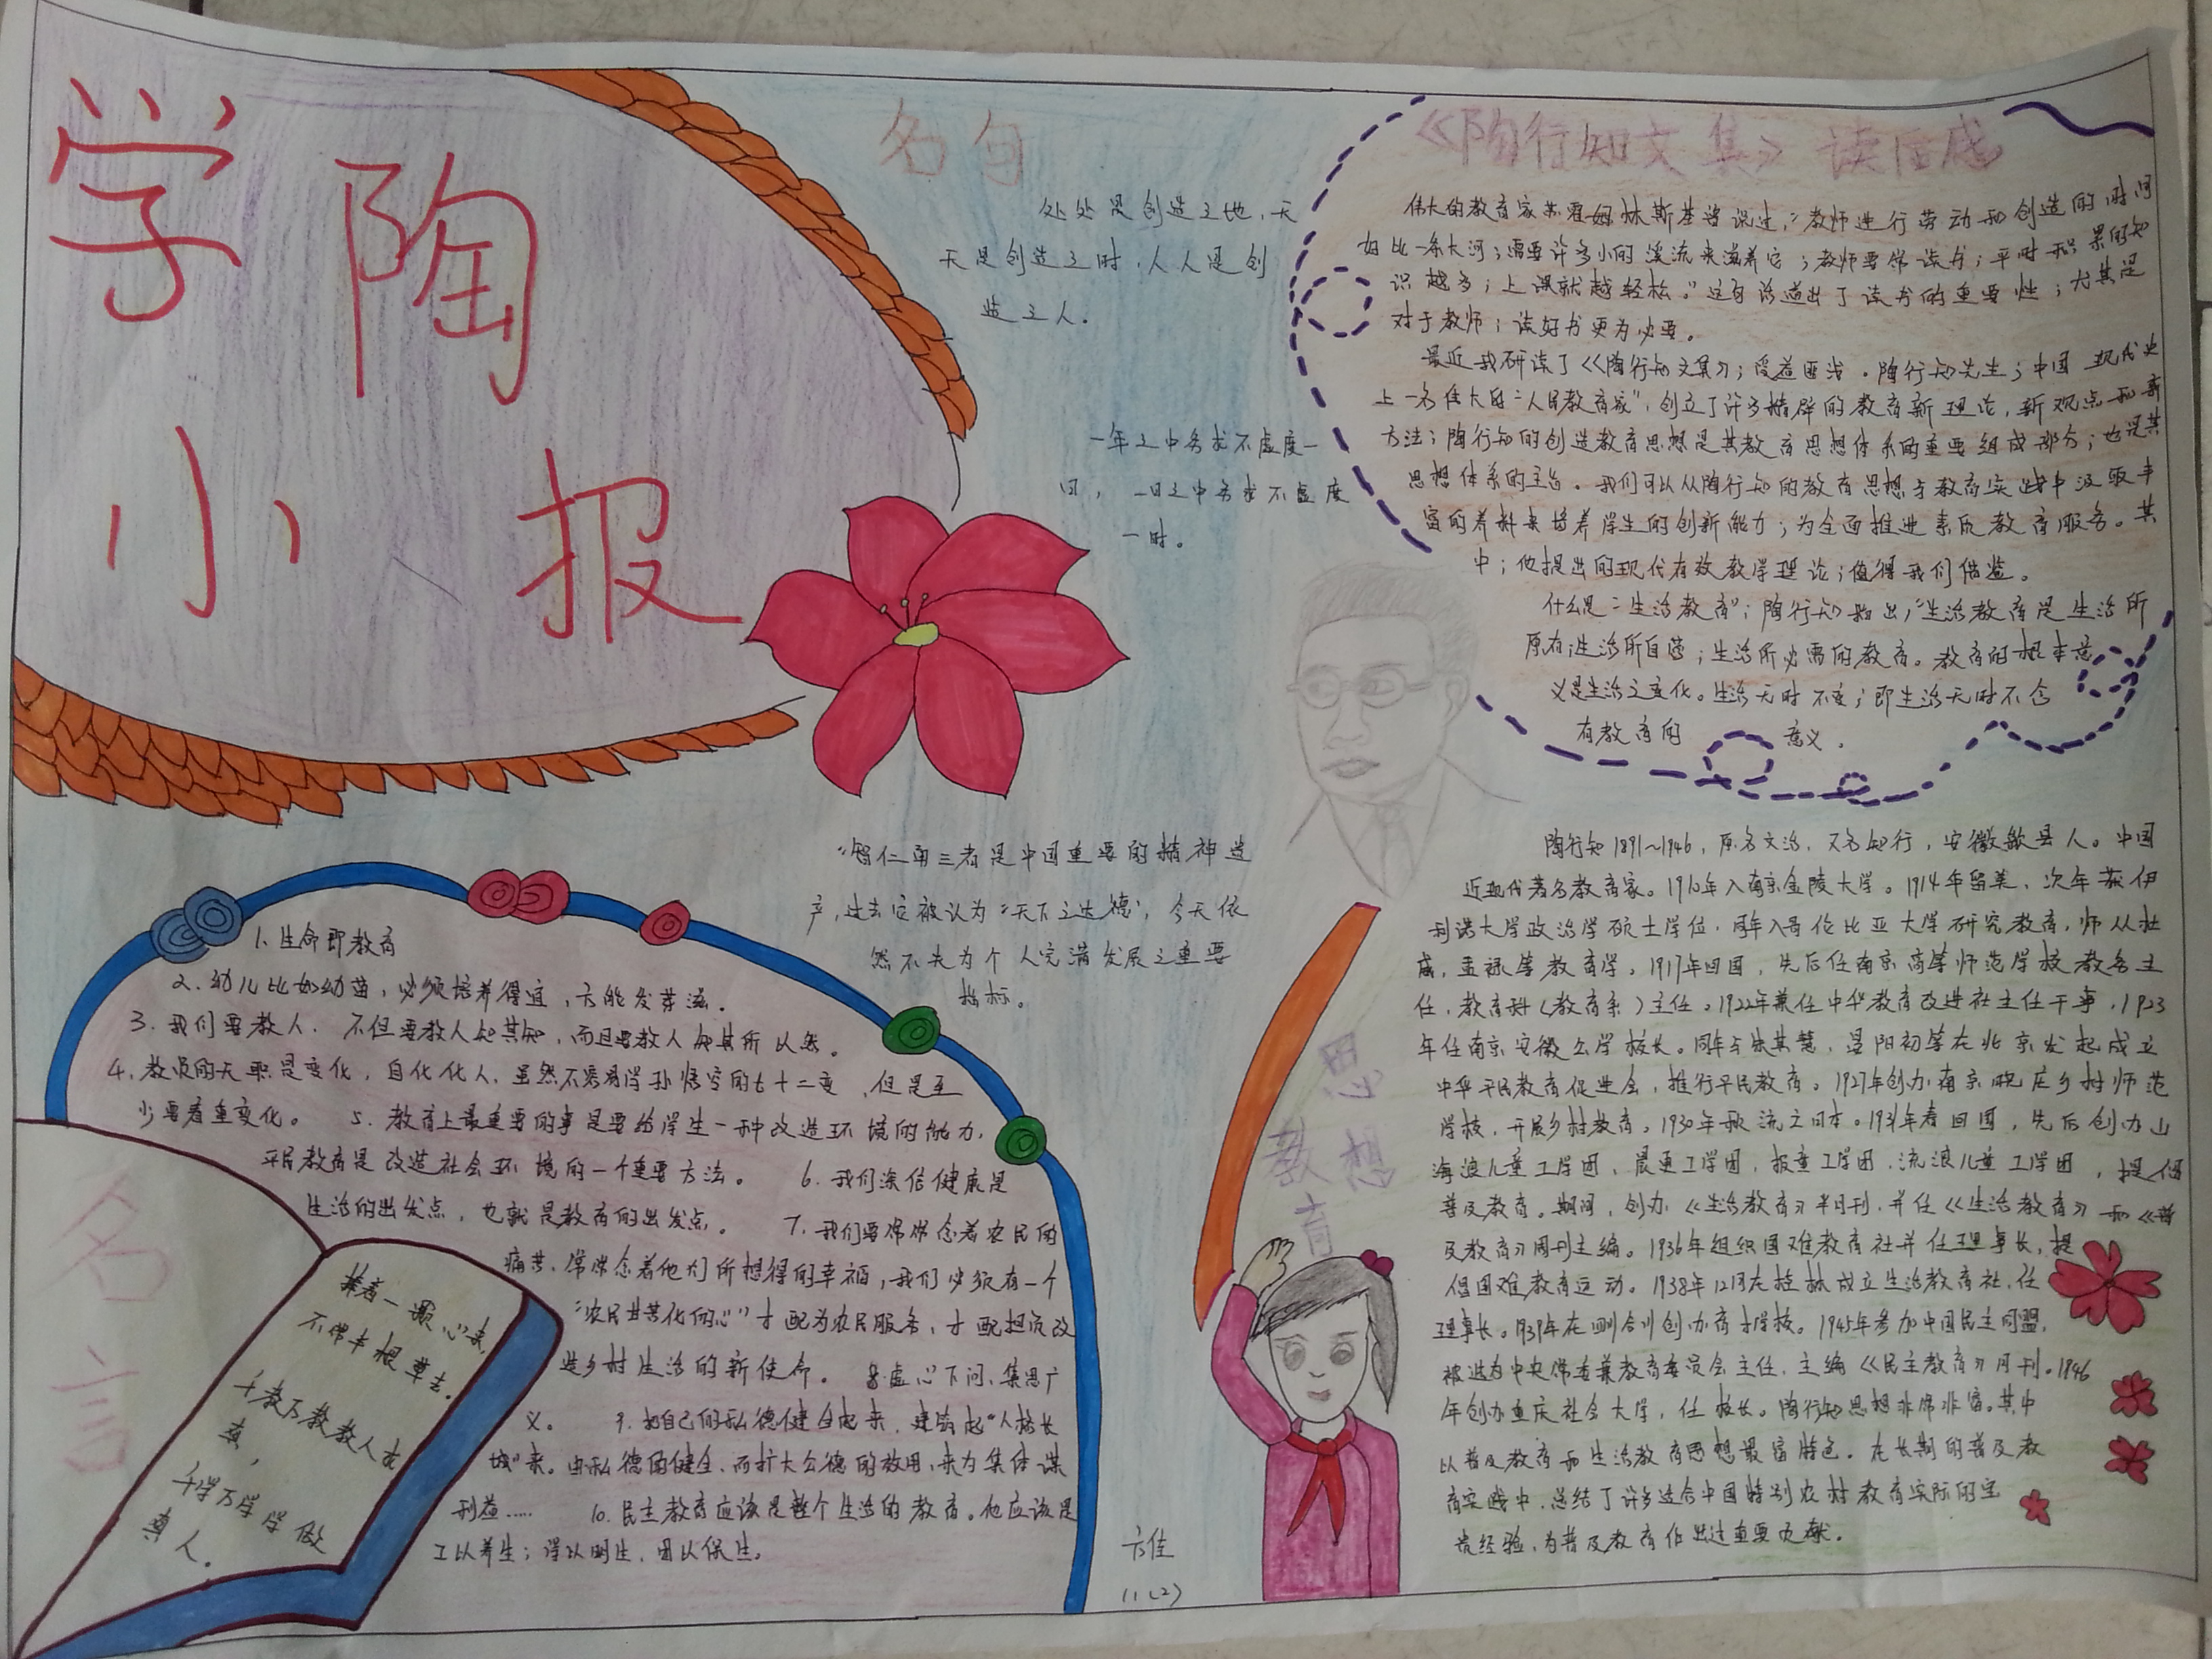 学陶
小报
名句
处处是创造之地，天
天是创造之时，人人是创
造之人.
一年之中务求不虚度一
日， 一日之中务求不虚度
一时。
"智仁勇三者是中国重要的精神遗
产，过去它被认为"天下之达德"，今天依
然不失为个人完满发展之重要
指标。
《陶行知文集》读后感
伟大的教育家苏霍姆林斯基曾说过："教师进行劳动和创造的时间
好比一条大河；需要许多小的溪流来滋养它；教师要常读书；平时积累的知
识越多；上课就越轻松。"这句话道出了读书的重要性；尤其是
对于教师；读好书更为必要。
最近我研读了《陶行知文集》；受益匪浅.陶行知先生；中国现代史
上一名伟大的"人民教育家"，创立了许多精辟的教育新理论，新观点和新
方法；陶行知的创造教育思想是其教育思想体系的重要组成部分；也是其
思想体系的主旨。我们可以从陶行知的教育思想与教育实践中汲取丰
富的养料来培养学生的创新能力；为全面推进素质教育服务。其
中；他提出的现代有效教学理论；值得我们借鉴。
什么是"生活教育"；陶行知指出；"生活教育是生活所
原有；生活所自营；生活所必需的教育。教育的根本意
义是生活之变化。生活无时不变；即生活无时不含
有教育的 意义.
陶行知1891~1946，原名文治，又名知行，安徽歙县人。中国
近现代著名教育家。1910年入南京金陵大学。1914年留美，次年获伊
利诺大学政治学硕士学位，同年入哥伦比亚大学研究教育，师从杜
威，孟禄等教育学。1917年回国，先后任南京高等师范学校教务主
任，教育科（教育系）主任。1922年兼任中华教育改进社主任干事，1923
年任南京安徽公学校长。同年与朱其慧，晏阳初等在北京发起成立
中华平民教育促进会，推行平民教育。1927年创办南京晓庄乡村师范
学校，开展乡村教育。1930年秋流亡日本。1931年春回国，先后创办山
海浪儿童工学团，晨更工学团，报童工学团，流浪儿童工学团，提倡
普及教育。期间，创办《生活教育》半月刊，并任《生活教育》和《普
及教育》周刊主编。1936年组织国难教育社并任理事长，提
倡国难教育运动。1938年12月在桂林成立生活教育社，任
理事长。1939年在四川合川创办育才学校。1945年参加中国民主同盟，
被选为中央常委兼教育委员会主任，主编《民主教育》月刊。1946
年创办重庆社会大学，任校长。陶行知思想非常丰富。其中
以普及教育和生活教育思想最富特色。在长期的普及教
育实践中，总结了许多适合中国特别农村教育实际的宝
贵经验，为普及教育作出过重要贡献。
思想
教育
1.生命即教育
2.幼儿比如幼苗，必须培养得宜，方能发芽滋.
3.我们要教人，不但要教人知其知，而且要教人知其所以然。
4.教员的天职是变化，自化化人，虽然不容易学孙悟空的七十二变，但是至
少要看重变化。 5.教育上最重要的事是要给学生一种改造环境的能力，
平民教育是改造社会环境的一个重要方法。 6.我们深信健康是
生活的出发点，也就是教育的出发点。 7.我们要常常念着农民的
痛苦，常常念着他们所想得的幸福，我们必须有一个
"农民甘苦化的心"才配为农民服务，才配担负改
造乡村生活的新使命。 8.虚心下问，集思广
义。 9.把自己的私德健全起来，建筑起"人格长
城"来。由私德的健全，而扩大公德的效用，来为集体谋
利益…… 10.民主教育应该是整个生活的教育。他应该是
工以养生；学以明生，团以保生。
名言
捧着一颗心来，
不带半根草去.
千教万教教人求
真，
千学万学学做
真人。
方佳
1(2)